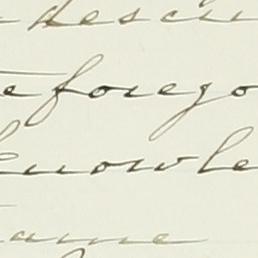 descri
e forego
knowle
ame